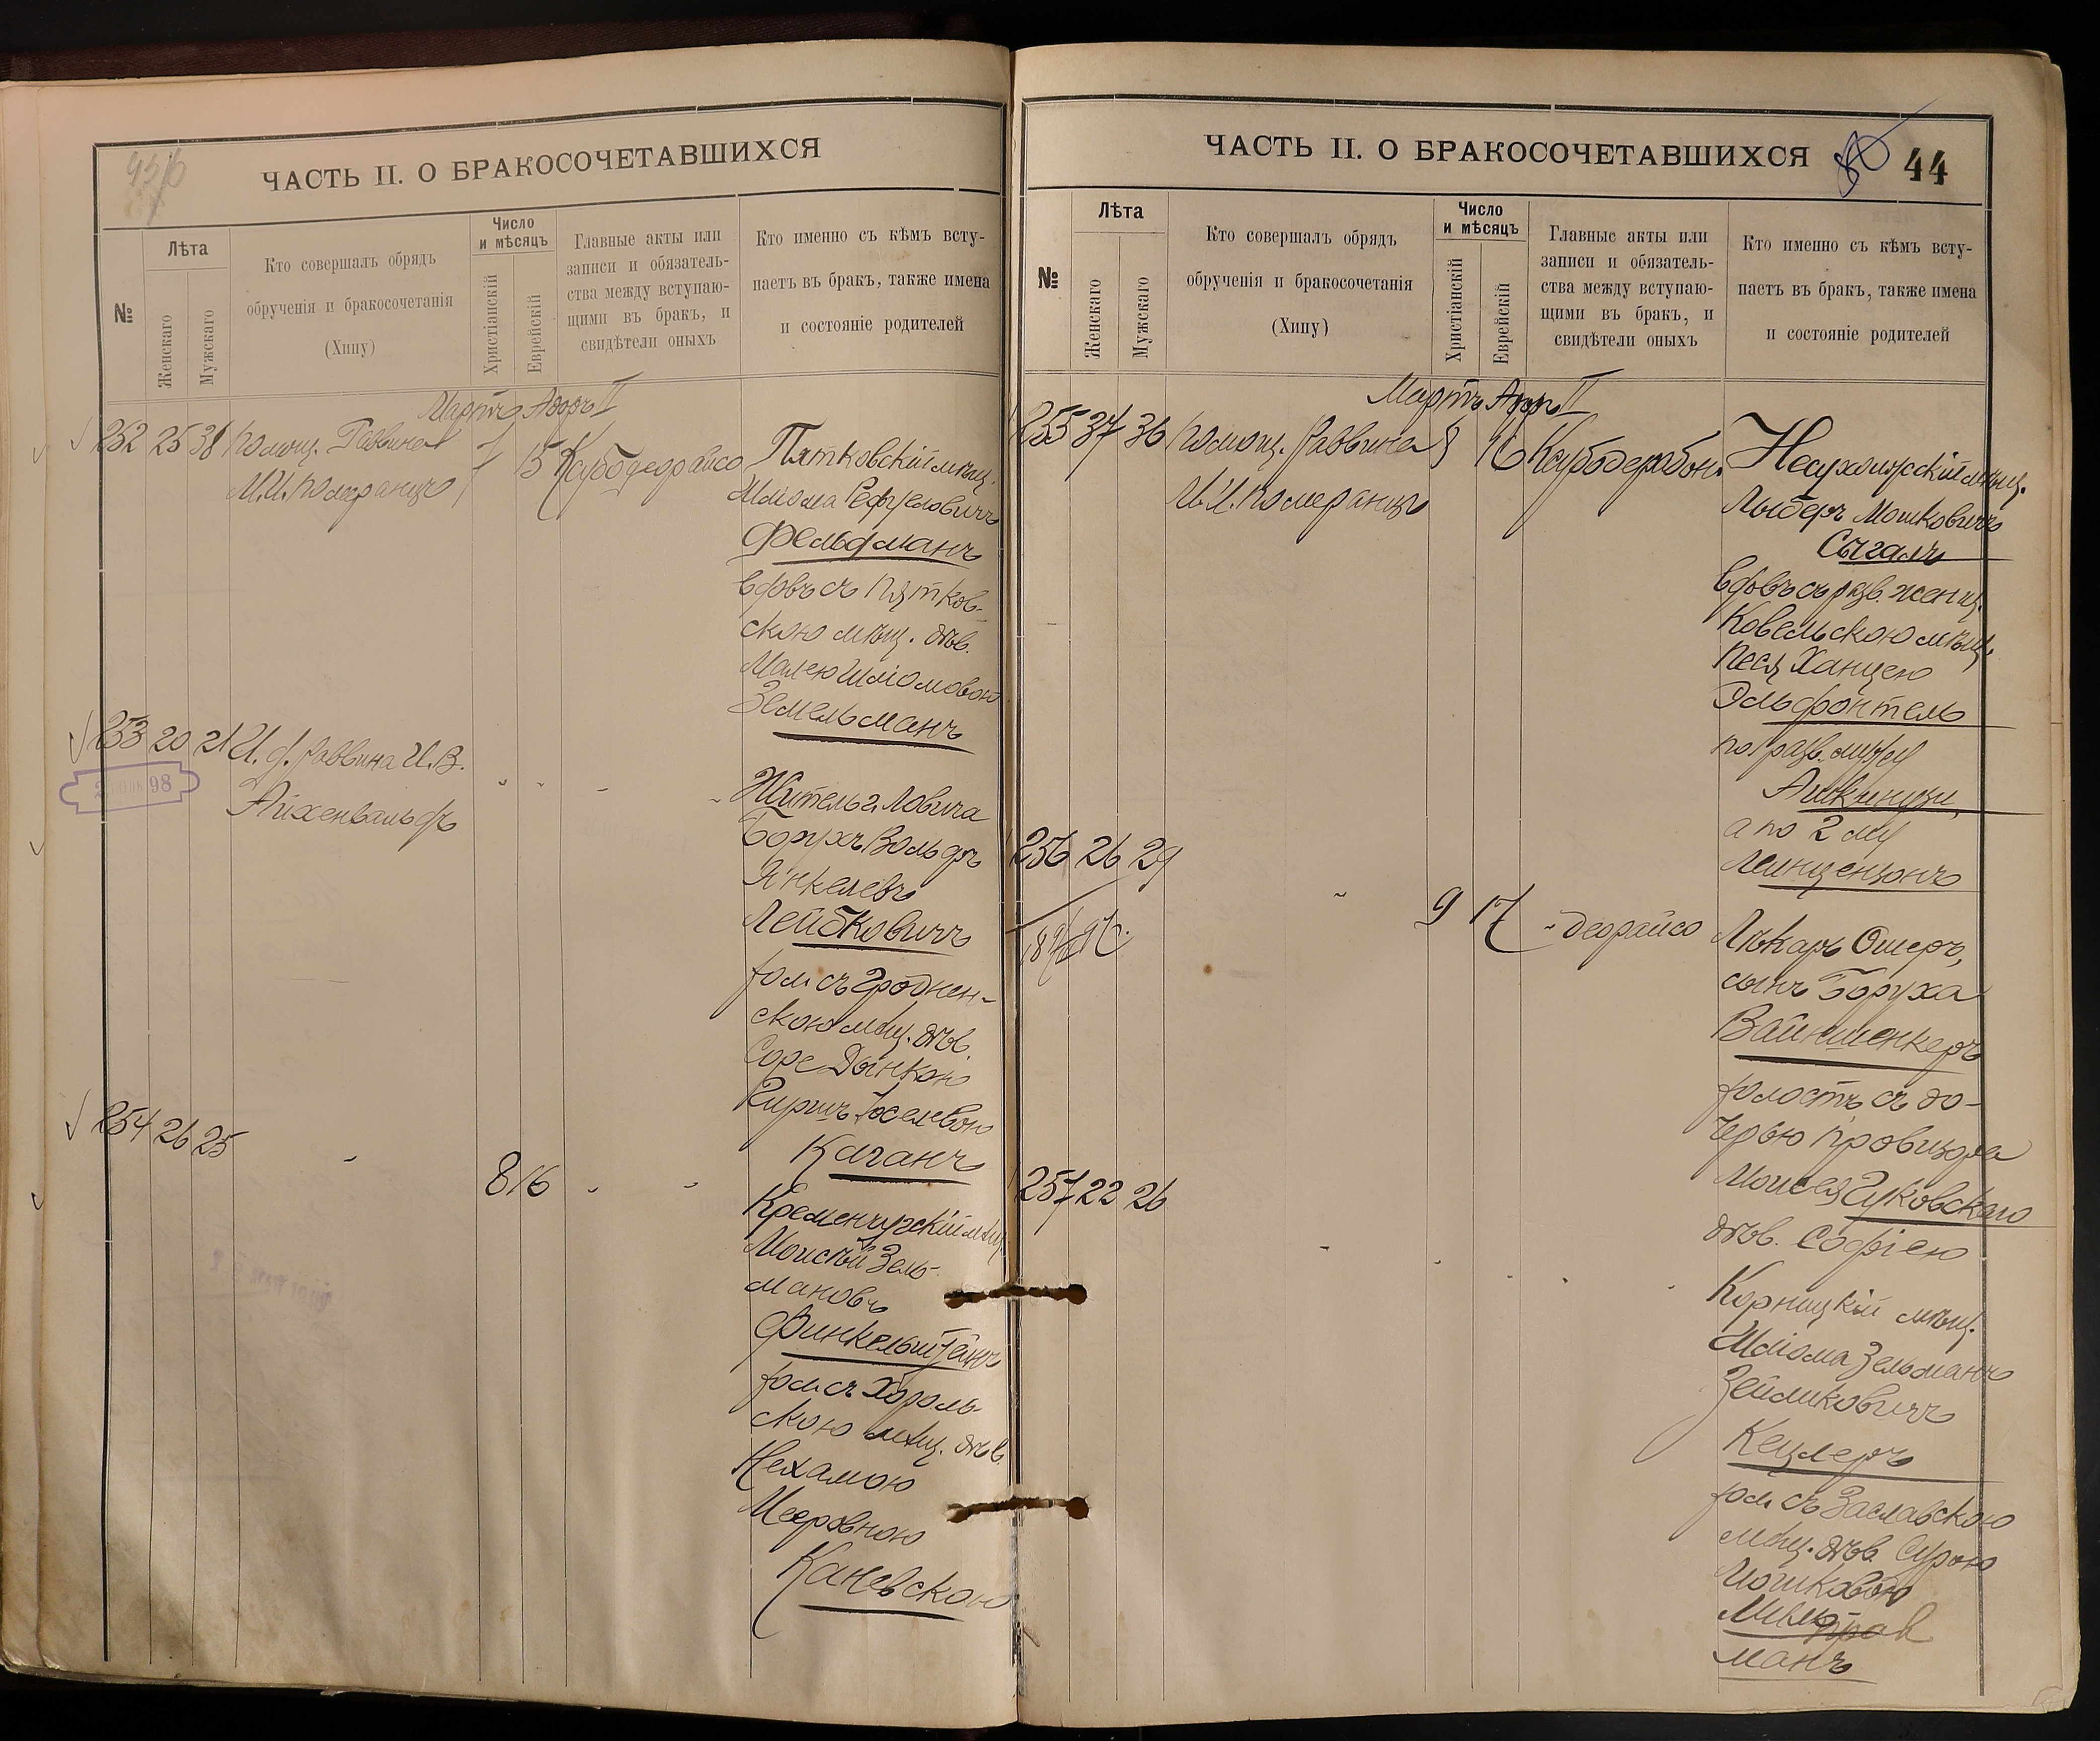 ЧАСТЬ II. О БРАКОСОЧЕТАВШИХСЯ
№
Лѣта
Женскаго
Мужскаго
Кто совершалъ обрядъ
обрученія и бракосочетанія
(Хипу)
Число
и мѣсяцъ
Христіанскій
Еврейскій
Главные акты или
записи и обязатель-
ства между вступаю-
щими въ бракъ, и
свидѣтели оныхъ
Кто именно съ кѣмъ всту-
паетъ въ бракъ, также имена
и состояніе родителей
Мартъ Адоръ II
252 25 38 Помощ. Раввина 7 15 Карбодеорайсо Пятковскій мѣщ.
М. И. Померанцъ
Шліома
Фельдманъ
вдовъ съ Пятков-
скою мѣщ. дѣв.
Малею Шліомовою
Зельманъ
253 20 21 И. д. раввина И. В.
Айхенвальдъ
98
Житель г. Ловича
Борухъ Вольфъ
Янкелевъ
Лейбковичъ
хол. съ Гроднен-
скою мѣщ. дѣв.
Соре Дынкою
Киршъ Іоселевою
Каганъ
254 26 25
8 16
Кременчугскій мѣщ.
Моисѣй Зель-
мановъ
Финкельштейнъ
хол. съ Хороль-
скою мѣщ. дѣв.
Нехамою
Мееровною
Каневскою
ЧАСТЬ II. О БРАКОСОЧЕТАВШИХСЯ
44
№
Лѣта
Женскаго
Мужскаго
Кто совершалъ обрядъ
обрученія и бракосочетанія
(Хипу)
Число
и мѣсяцъ
Христіанскій
Еврейскій
Главные акты или
записи и обязатель-
ства между вступаю-
щими въ бракъ, и
свидѣтели оныхъ
Кто именно съ кѣмъ всту-
паетъ въ бракъ, также имена
и состояніе родителей
Мартъ Адоръ II
255 37 36 Помощ. Раввина 8 16 Карбодерабон.
М. И. Померанцъ
мѣщ.
Лыберъ Мошковичъ
Сыгалъ
вдовъ съ разв. женщ.
Ковельскою мѣщ.
Песя Ханцею
Эльфонтель
по 1 разв. мужу
Ашкинузи,
а по 2 му
256 26 29
9 17 - деорайсо
Лѣкарь Ошеръ,
сынъ Боруха
Вайншенкеръ
холостъ съ до-
черью провизора
Моисея Гуковскаго
дѣв. Софіею
257 22 26
Корницкій мѣщ.
Шліома Зельманъ
Зейликовичъ
Кецлеръ
хол. съ Заславскою
мѣщ. дѣв. Сурою
Мошковою
манъ